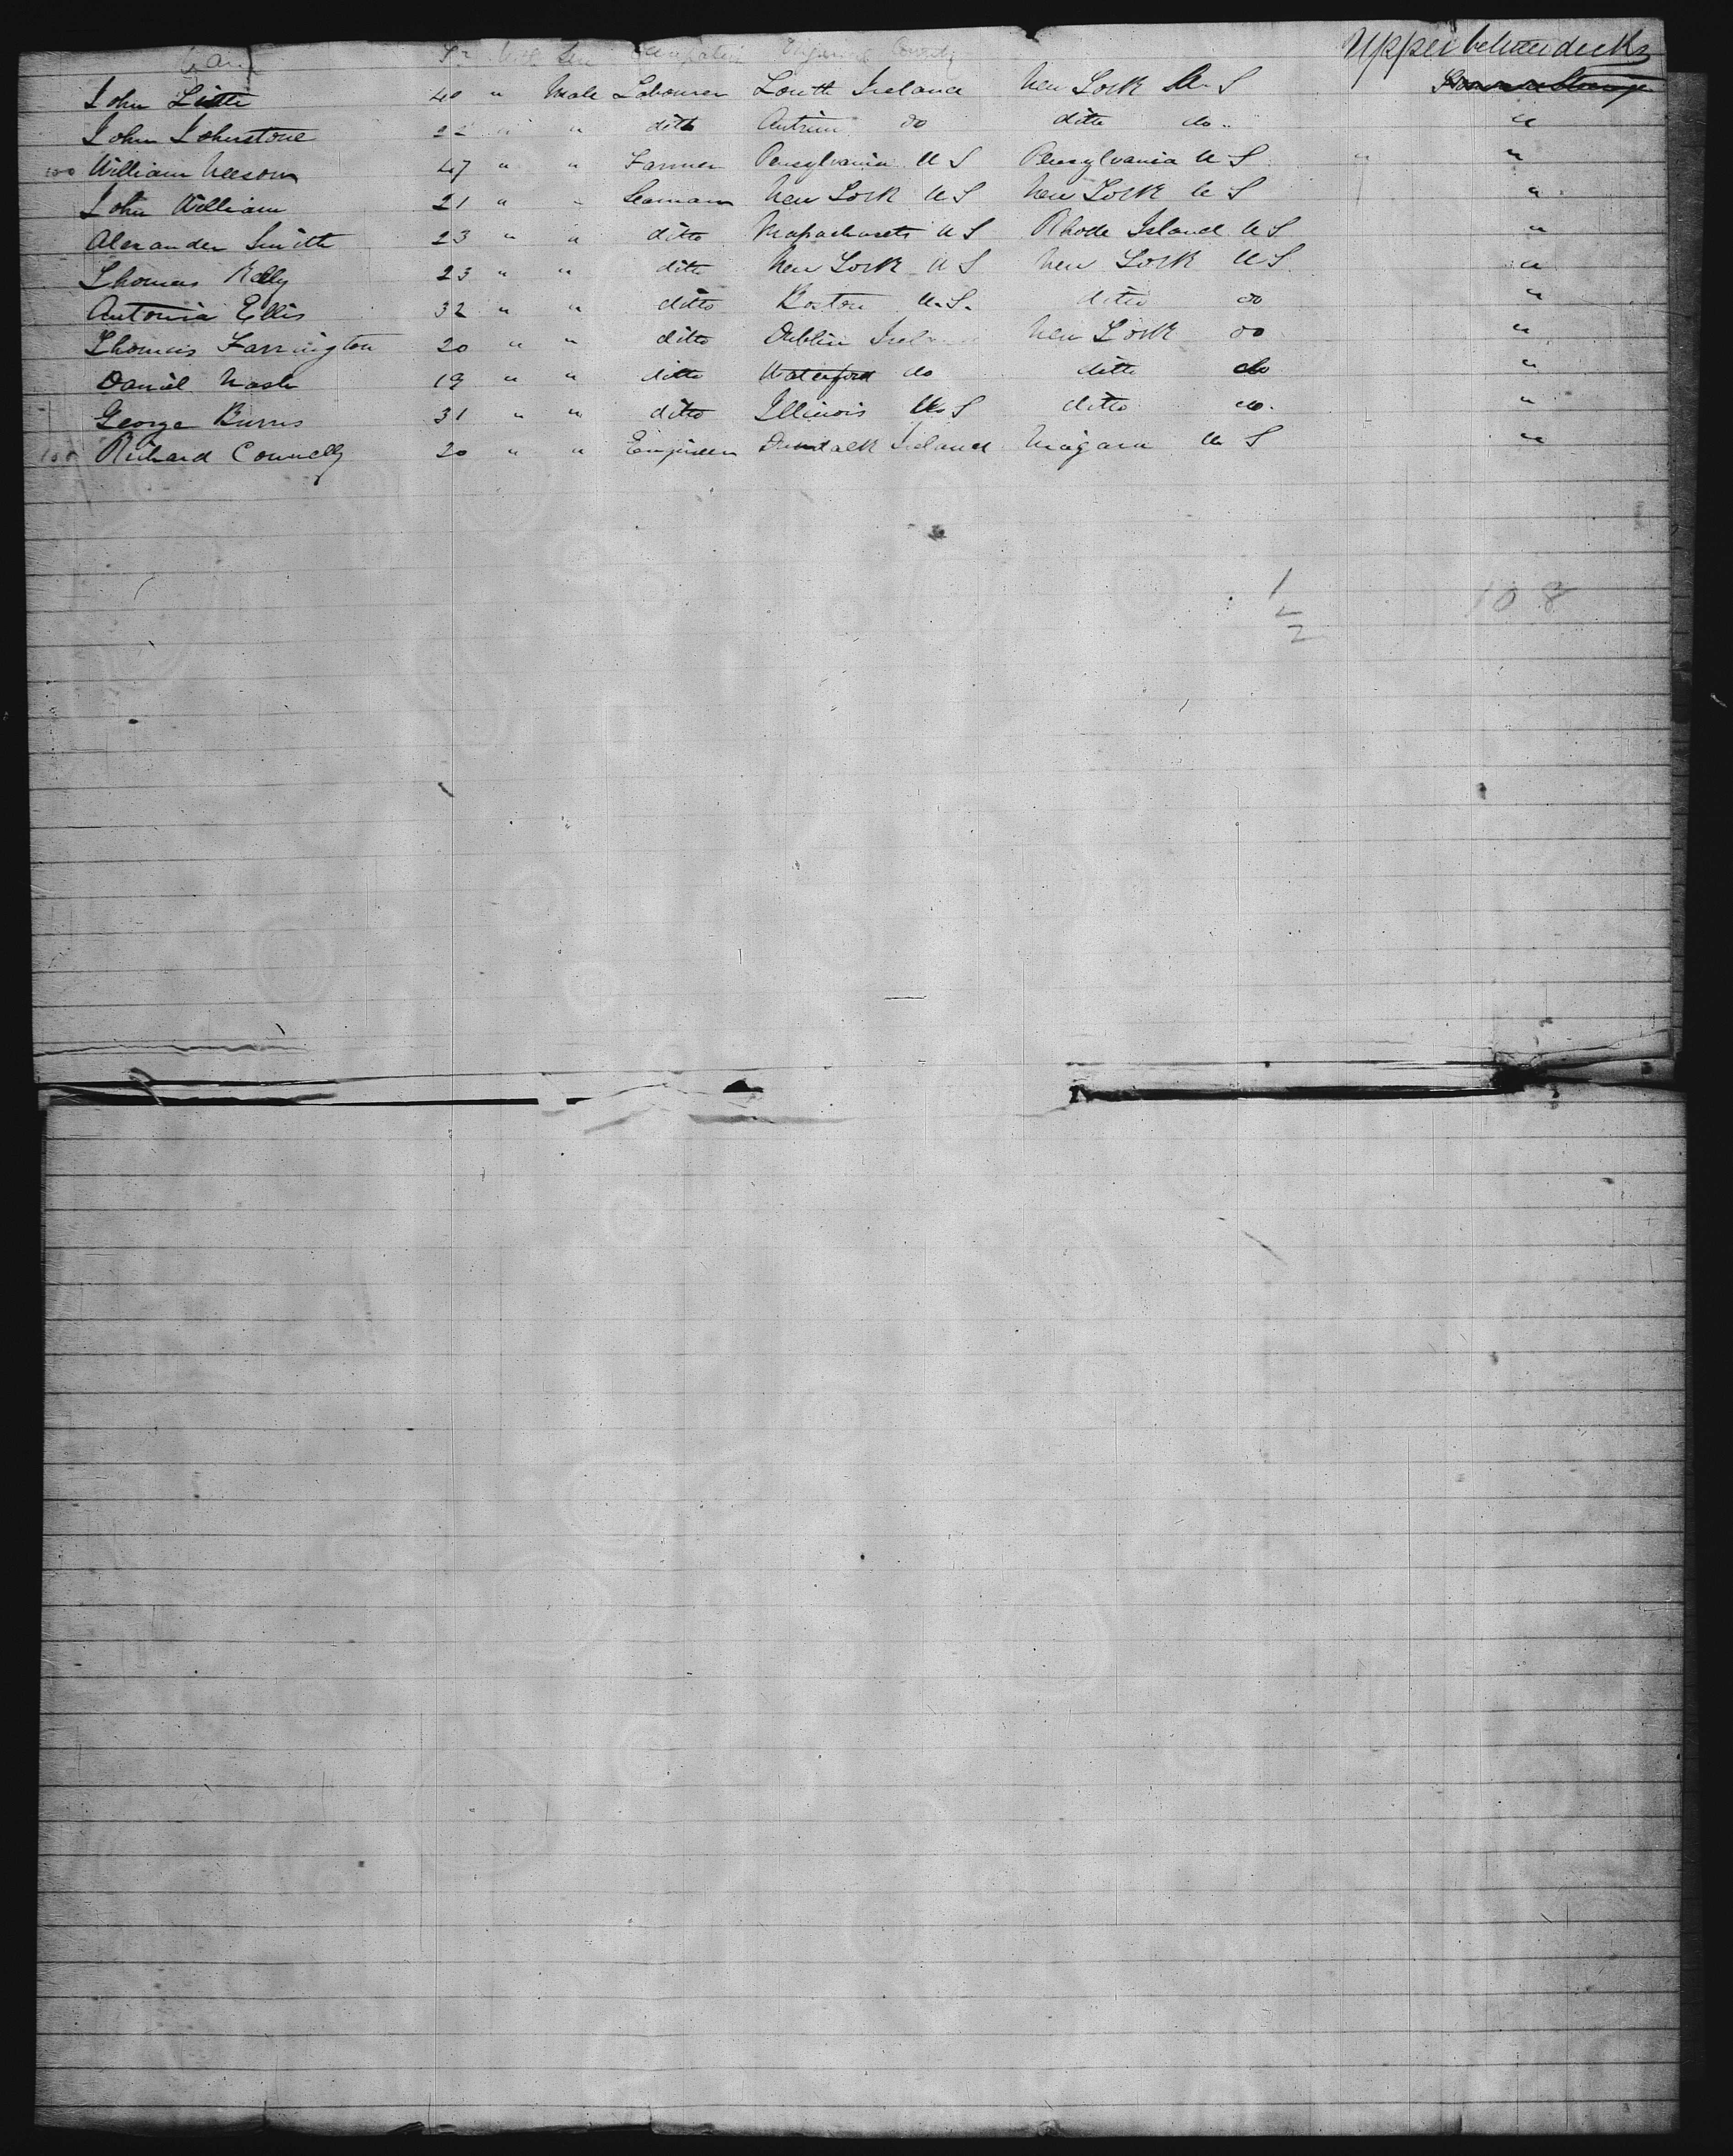 Name Yr Mth Sex Occupation County Upper between decks
John Little 40 " Male Labourer Louth Ireland New York U.S "
John Johnstone 22 " " ditto Antrim do ditto do "
100 William Neeson 47 " " Farmer Pensylvania U S Pensylvania U S " "
John William 21 " " Seaman New York U S New York U S "
Alexander Smith 23 " " ditto Massachusets U S Rhode Island U S "
Thomas Kelly 23 " " ditto New York U S New York U S "
Antonia Ellis 32 " " ditto Boston U.S. ditto do "
Thomas Farrington 20 " " ditto Dublin Ireland New York do "
Daniel Nash 19 " " ditto Waterford do ditto do "
George Burns 31 " " ditto Illinois U.S ditto do. "
Richard Connelly 20 " " Engineer Dundalk Ireland Niagara U S "
1
2
108